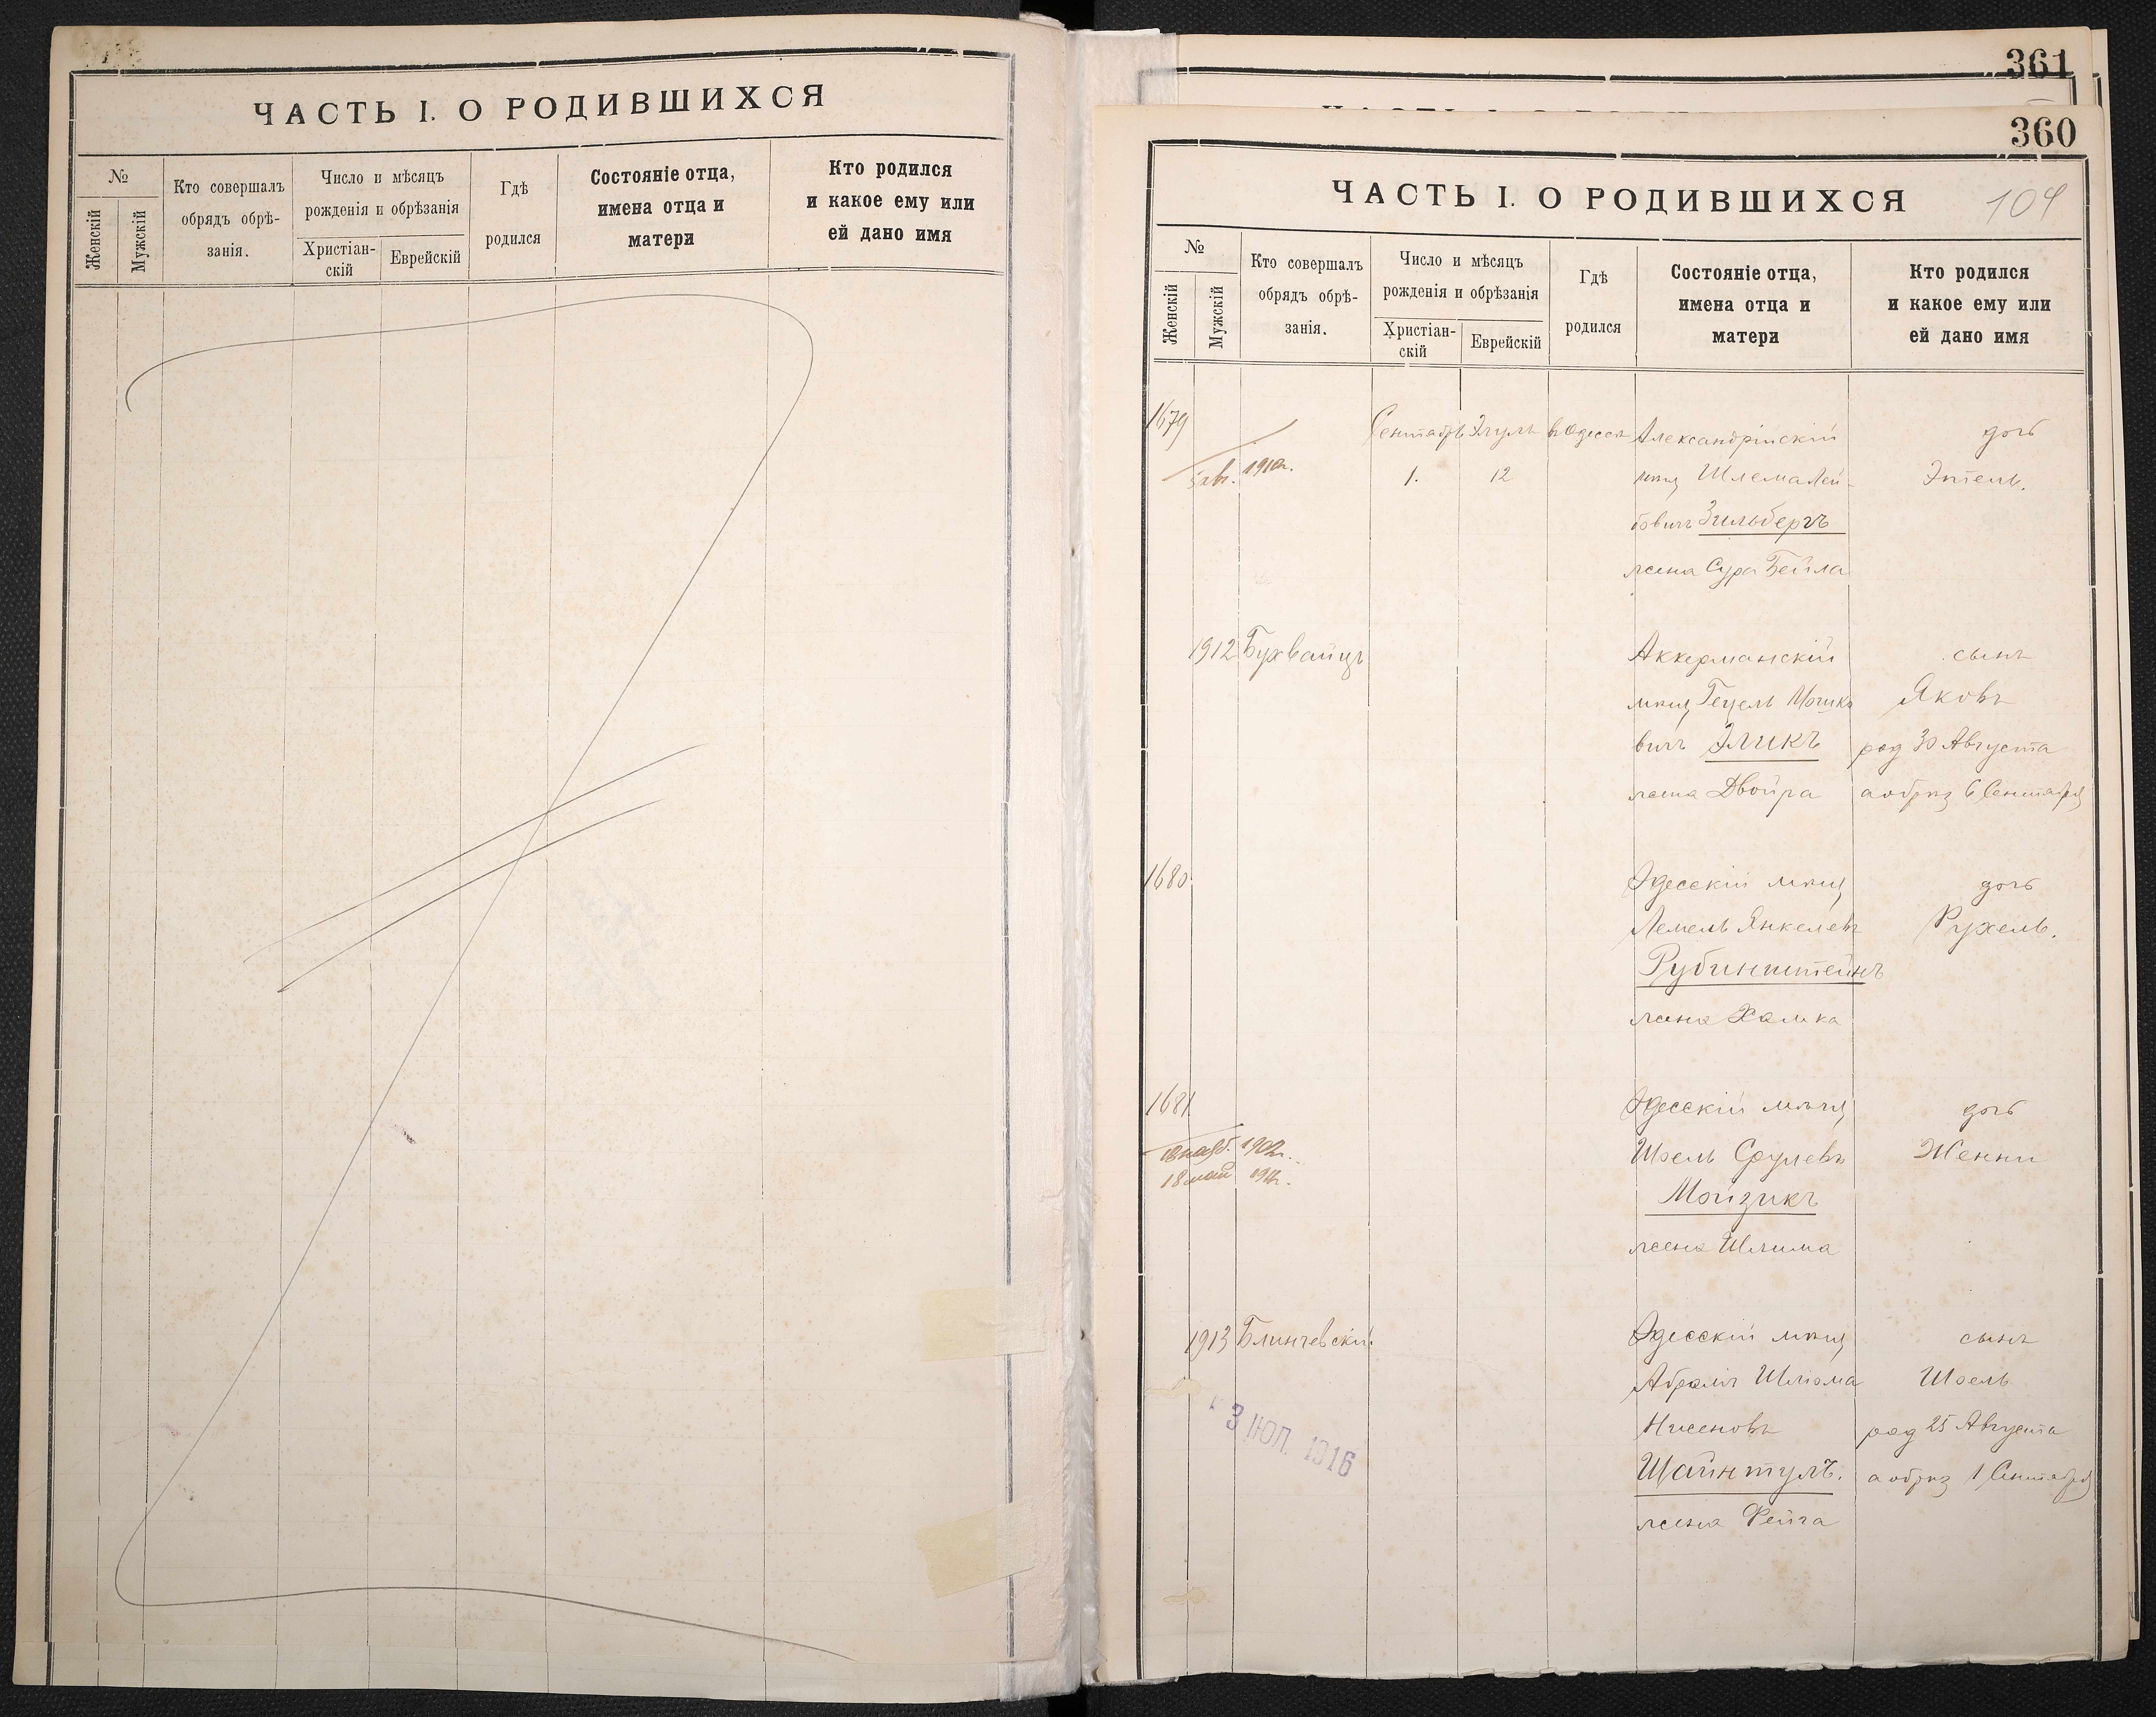 ЧАСТЬ I. О РОДИВШИХСЯ
№
Женскій
Мужскій
Кто совершалъ
обрядъ обрѣ-
занія.
Число и мѣсяцъ
рожденія и обрѣзанія
Христіан-
скій
Еврейскій
Гдѣ
родился
Состояніе отца,
имена отца и
матери
Кто родился
и какое ему или
ей дано имя
361
360
ЧАСТЬ I. О РОДИВШИХСЯ
104
№
Женскій
Мужскій
Кто совершалъ
обрядъ обрѣ-
занія.
Число и мѣсяцъ
рожденія и обрѣзанія
Христіан-
скій
Еврейскій
Гдѣ
родился
Состояніе отца,
имена отца и
матери
Кто родился
и какое ему или
ей дано имя
1679 Сентябрь Элулъ въ Одессѣ Александрійскій дочь
1910г. 1. 12 мѣщ Шлема Лей- Этель.
бовичъ Зильбергъ
жена Сура Бейла
1912 Бухвайцъ Аккерманскій сынъ
мѣщ Гецель Мошко Яковъ
вичъ Эликъ род 30 Августа
жена Двойра а обрѣз 6 Сентября
1680 Одесскій мѣщ дочь
Лемель Янкелевъ Рухель.
Рубинштейнъ
жена Хайка
1681 Одесскій мѣщ дочь
Шоель Срулевъ Женни
18 май
Мойзикъ
жена Шлима
1913 Блинчевскій Одесскій мѣщ сынъ
Абрамъ Шлёма Шоель
Нисеновъ род 25 Августа
3 ІЮЛ. 1916
Шайнтулъ. а обрѣз 1 Сентября
жена Фейга